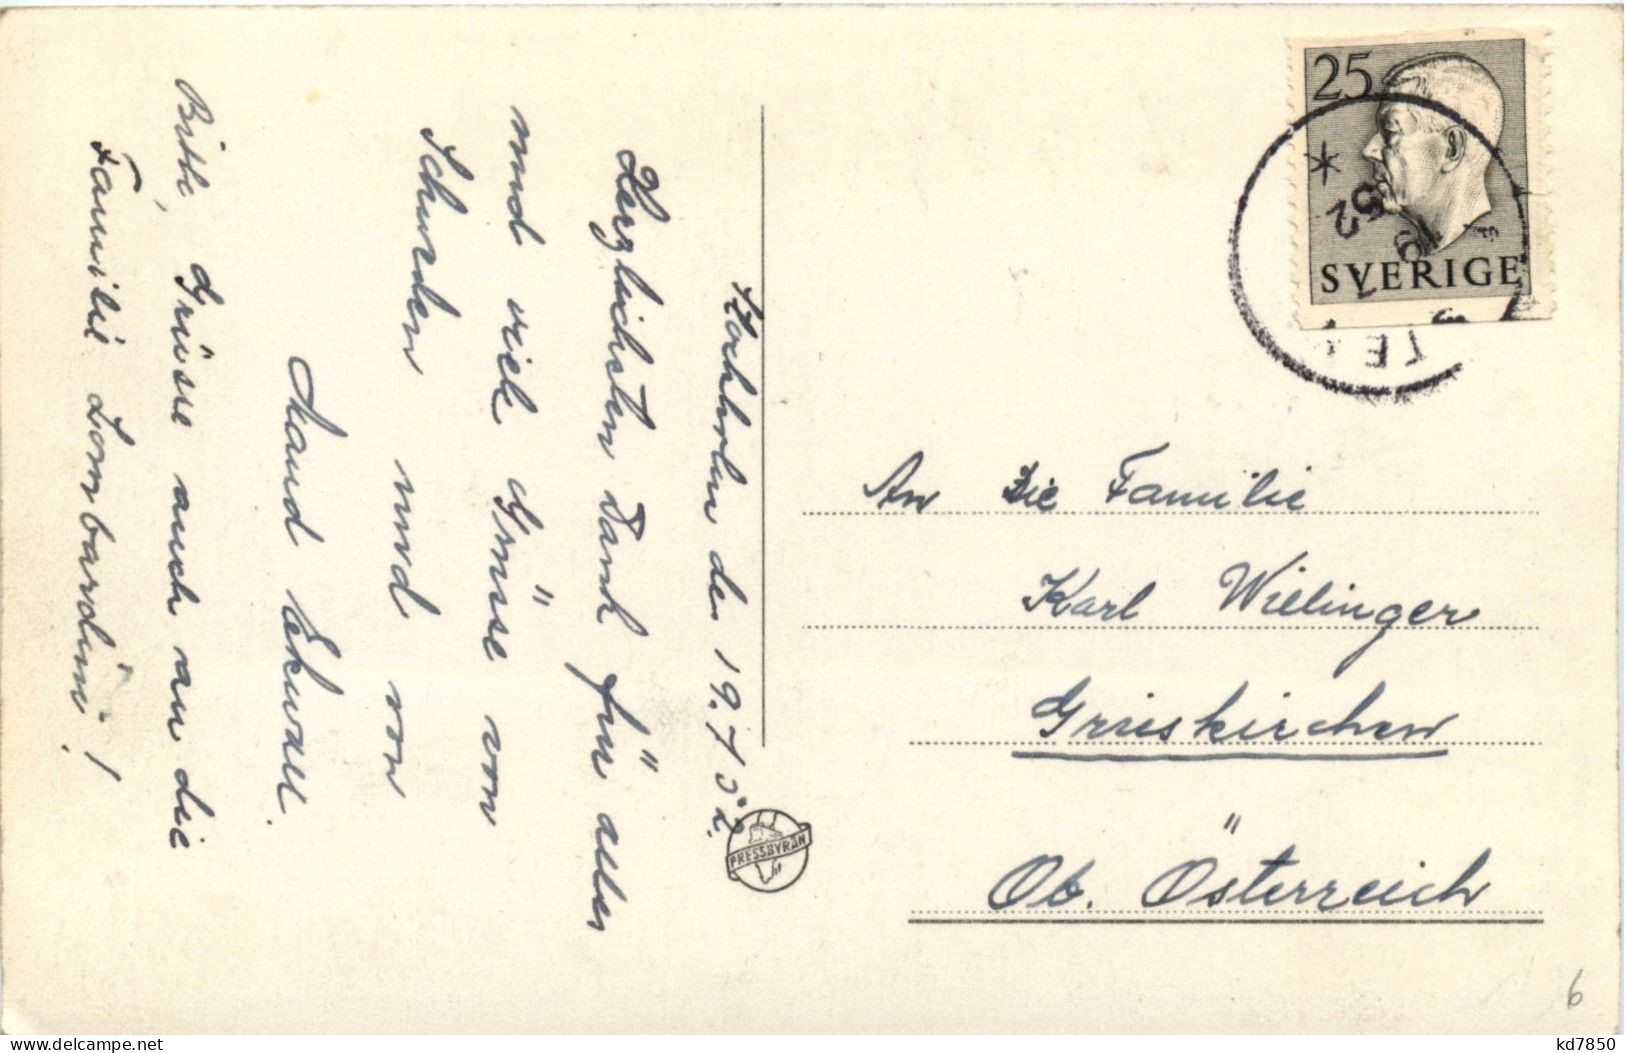 Stockholm den 19.7 52.
Herzlichsten Dank für alles
und viele Grüsse von
Schweden und von
Maud Ekwall.
Bitte, Grüsse auch an die
Familie Lombardini!
PRESSBYRÅN
25
SVERIGE
19
7
52
An Die Familie
Karl Wielinger
Grieskirchen
Ob. Österreich
6
delcampe.net
kd7850